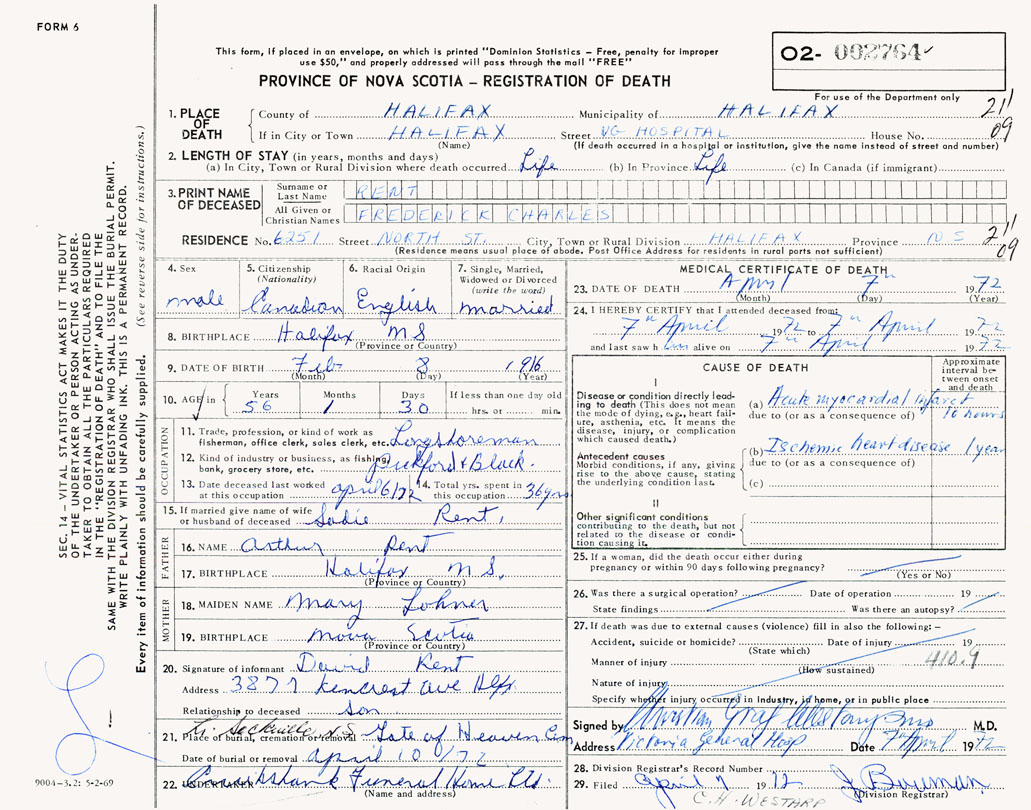 FORM 6
This form, if placed in an envelope, on which is printed "Dominion Statistics – Free, penalty for improper
use $50," and properly addressed will pass through the mail "FREE"
PROVINCE OF NOVA SCOTIA – REGISTRATION OF DEATH
O2- 002764
For use of the Department only
211
09
SEC. 14 – VITAL STATISTICS ACT MAKES IT THE DUTY
OF THE UNDERTAKER OR PERSON ACTING AS UNDER-
TAKER TO OBTAIN ALL THE PARTICULARS REQUIRED
IN THE "REGISTRATION OF DEATH" AND TO FILE THE
SAME WITH THE DIVISION REGISTRAR WHO SHALL ISSUE THE BURIAL PERMIT.
WRITE PLAINLY WITH UNFADING INK. THIS IS A PERMANENT RECORD.
Every item of information should be carefully supplied. (See reverse side for instructions.)
1. PLACE OF DEATH
County of HALIFAX Municipality of HALIFAX
If in City or Town HALIFAX Street VG HOSPITAL House No.
(Name) (If death occurred in a hospital or institution, give the name instead of street and number)
2. LENGTH OF STAY (in years, months and days)
(a) In City, Town or Rural Division where death occurred Life (b) In Province Life (c) In Canada (if immigrant)
3. PRINT NAME OF DECEASED
Surname or Last Name RENT
All Given or Christian Names FREDERICK CHARLES
RESIDENCE No. 6251 Street NORTH ST. City, Town or Rural Division HALIFAX Province NS
(Residence means usual place of abode. Post Office Address for residents in rural parts not sufficient)
211
09
4. Sex
male
5. Citizenship (Nationality)
Canadian
6. Racial Origin
English
7. Single, Married, Widowed or Divorced (write the word)
married
8. BIRTHPLACE Halifax N S
(Province or Country)
9. DATE OF BIRTH Feb 8 1916
(Month) (Day) (Year)
10. AGE in Years Months Days If less than one day old
56 1 30 hrs. or min.
OCCUPATION
11. Trade, profession, or kind of work as
fisherman, office clerk, sales clerk, etc. Longshoreman
12. Kind of industry or business, as fishing,
bank, grocery store, etc. Pickford & Black.
13. Date deceased last worked
at this occupation april 6/72
14. Total yrs. spent in
this occupation 36 yrs
15. If married give name of wife
or husband of deceased Sadie Rent,
FATHER
16. NAME Arthur Rent
17. BIRTHPLACE Halifax N.S.
(Province or Country)
MOTHER
18. MAIDEN NAME Mary Lohner
19. BIRTHPLACE Nova Scotia
(Province or Country)
20. Signature of informant David Rent
Address 3877 Kencrest Ave Hlfx
Relationship to deceased son
Sackville, N.S.
21. Place of burial, cremation or removal Gate of Heaven Cem
Date of burial or removal april 10/72
22. UNDERTAKER Cruikshank Funeral Home Ltd.
(Name and address)
9004–3.2: 5-2-69
MEDICAL CERTIFICATE OF DEATH
23. DATE OF DEATH April 7th 1972
(Month) (Day) (Year)
24. I HEREBY CERTIFY that I attended deceased from:
7th April 1972 to 7th April 1972
and last saw him alive on 7th April 1972
CAUSE OF DEATH
Approximate interval between onset and death
I
Disease or condition directly lead-
ing to death (This does not mean
the mode of dying, e.g., heart fail-
ure, asthenia, etc. It means the
disease, injury, or complication
which caused death.)
(a) Acute myocardial infarct 10 hours
due to (or as a consequence of)
Antecedent causes
Morbid conditions, if any, giving
rise to the above cause, stating
the underlying condition last.
(b) Ischemic heart disease 1 year
due to (or as a consequence of)
(c)
II
Other significant conditions
contributing to the death, but not
related to the disease or condi-
tion causing it.
25. If a woman, did the death occur either during
pregnancy or within 90 days following pregnancy?
(Yes or No)
26. Was there a surgical operation? Date of operation 19
State findings Was there an autopsy?
27. If death was due to external causes (violence) fill in also the following: –
Accident, suicide or homicide? Date of injury 19
(State which)
Manner of injury 410.9
(How sustained)
Nature of injury
Specify whether injury occurred in Industry, in home, or in public place
Signed by M.D.
Address Victoria General Hosp Date 7 April 1972
28. Division Registrar's Record Number
29. Filed April 7 1972 J. Bauman
(Division Registrar)
C.H. WESTARP